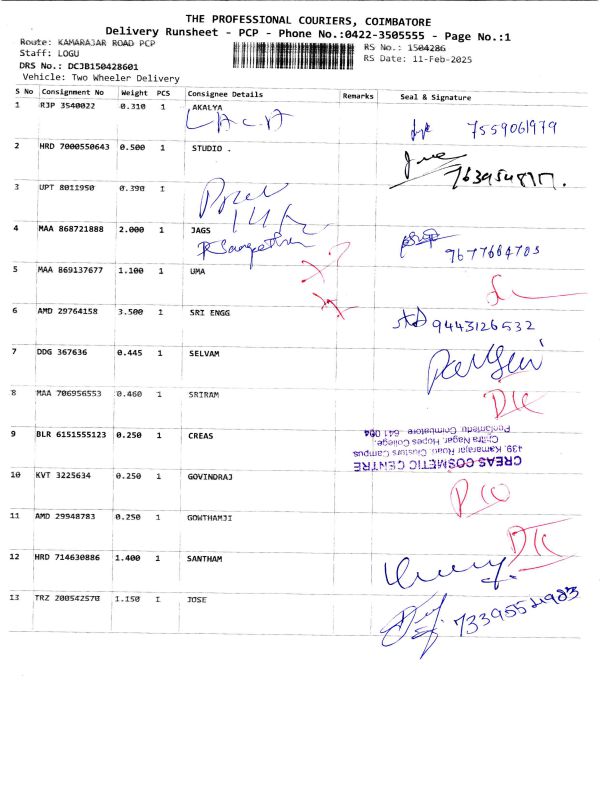 THE PROFESSIONAL COURIERS, COIMBATORE
Delivery Runsheet - PCP - Phone No.:0422-3505555 - Page No.:1
Route: KAMARAJAR ROAD PCP
RS No.: 1504286
Staff: LOGU
RS Date: 11-Feb-2025
DRS No.: DCJB150428601
Vehicle: Two Wheeler Delivery
S No Consignment No Weight PCS Consignee Details Remarks Seal & Signature
1 RJP 3540022 0.310 1 AKALYA
7559061979
2 HRD 7000550643 0.500 1 STUDIO .
3 UPT 8011950 0.390 1
4 MAA 868721888 2.000 1 JAGS
R Sangeetha
9677664703
5 MAA 869137677 1.100 1 UMA
6 AMD 29764158 3.500 1 SRI ENGG
9443126532
7 DDG 367636 0.445 1 SELVAM
8 MAA 706956553 0.460 1 SRIRAM
DLC
9 BLR 6151555123 0.250 1 CREAS
CREAS COSMETIC CENTRE
439, Kamarajar Road, Clusters Campus
Chitra Nagar, Hopes College,
Peelamedu Coimbatore - 641 004
10 KVT 3225634 0.250 1 GOVINDRAJ
11 AMD 29948783 0.250 1 GOWTHAMJI
DLC
12 HRD 714630886 1.400 1 SANTHAM
13 TRZ 200542570 1.150 1 JOSE
7339554983